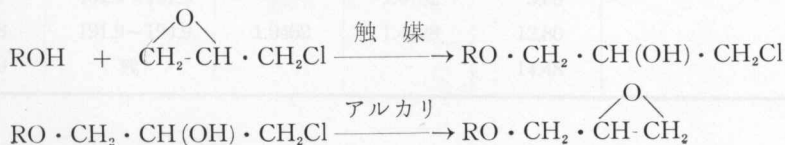 O
ROH + CH₂-CH・CH₂Cl 触媒 → RO・CH₂・CH(OH)・CH₂Cl
O
RO・CH₂・CH(OH)・CH₂Cl アルカリ → RO・CH₂・CH-CH₂